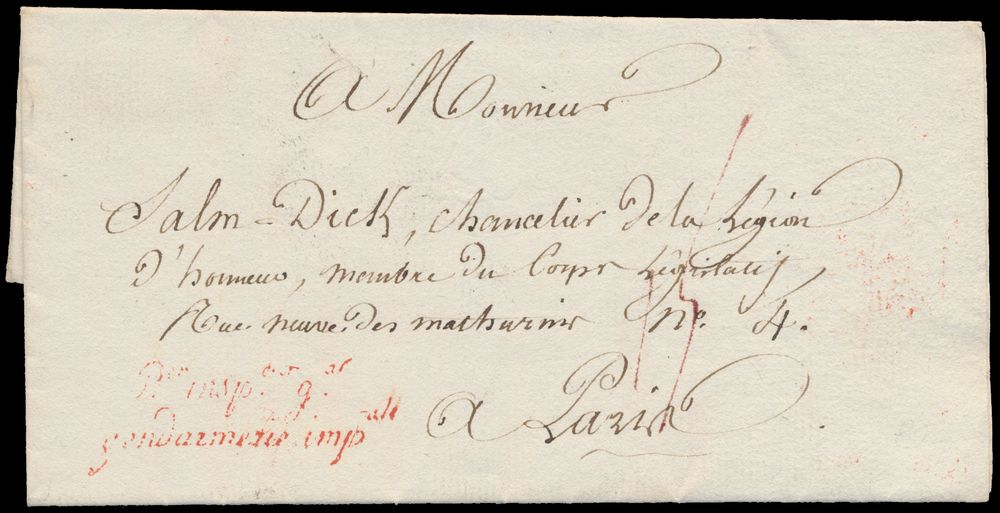 A Monsieur
Salm-Dick, chancelier de la Légion
d'honneur, membre du Corps Législatif,
Rue neuve des mathurins n.° 4.
a Paris
insp.eur g.al
gendarmerie imp.ale